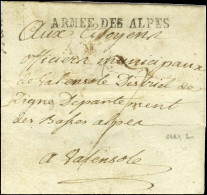 ARMÉE DES ALPES
Aux Citoyens
officiers municipaux
de Valensole District de
Digne Departement
des Basses alpes
a Valensole